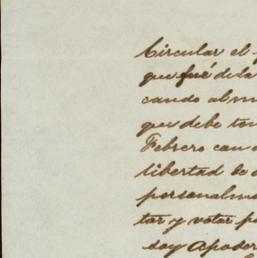 Circular el
que fué de la
cando al
que debe
Febrero con
libertad de
personalme
tar y votar
soy Apoder